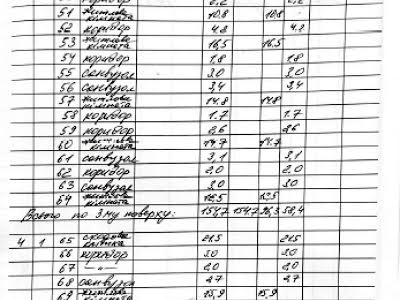 коридор 6,2 6,2
51 житлова кімната 10,8 10,8
52 коридор 4,2 4,2
53 житлова кімната 16,5 16,5
54 коридор 1,8 1,8
55 санвузол 3,0 3,0
56 санвузол 3,4 3,4
57 житлова кімната 14,8 14,8
58 коридор 1.7 1.7
59 коридор 2,6 2,6
60 житлова кімната 14.7 14.7
61 санвузол 3,1 3,1
62 коридор 2,0 2.0
63 санвузол 3,0 3,0
64 житлова кімната 12,5 12,5
Всього по 3му поверху: 154,7 154.7 96,3 58,4
4 1 65 сходова клітка 21.5 21.5
66 коридор 3.0 3.0
67 —"— 2,0 2,0
68 санвузол 2.7 2.7
69 житлова 15,9 15,9